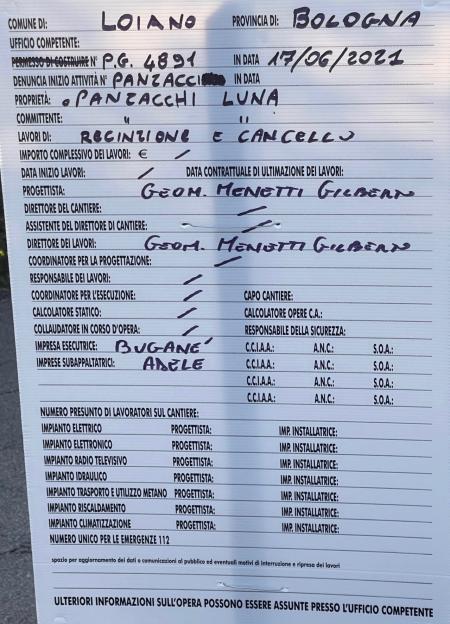 COMUNE DI: LOIANO PROVINCIA DI: BOLOGNA
UFFICIO COMPETENTE:
PERMESSO DI COSTRUIRE N° P.G. 4891 IN DATA 17/06/2021
DENUNCIA INIZIO ATTIVITÀ N° PANZACCI IN DATA
PROPRIETÀ: PANZACCHI LUNA
COMMITTENTE: " "
LAVORI DI: RECINZIONE E CANCELLO
IMPORTO COMPLESSIVO DEI LAVORI: € /
DATA INIZIO LAVORI: / DATA CONTRATTUALE DI ULTIMAZIONE DEI LAVORI:
PROGETTISTA: GEOM. MENETTI GILBERTO
DIRETTORE DEL CANTIERE: /
ASSISTENTE DEL DIRETTORE DI CANTIERE: /
DIRETTORE DEI LAVORI: GEOM. MENETTI GILBERTO
COORDINATORE PER LA PROGETTAZIONE: /
RESPONSABILE DEI LAVORI: /
COORDINATORE PER L'ESECUZIONE: / CAPO CANTIERE:
CALCOLATORE STATICO: / CALCOLATORE OPERE C.A.:
COLLAUDATORE IN CORSO D'OPERA: / RESPONSABILE DELLA SICUREZZA:
IMPRESA ESECUTRICE: BUGANE' C.C.I.A.A.: A.N.C.: S.O.A.:
IMPRESE SUBAPPALTATRICI: ADELE C.C.I.A.A.: A.N.C.: S.O.A.:
C.C.I.A.A.: A.N.C.: S.O.A.:
C.C.I.A.A.: A.N.C.: S.O.A.:
NUMERO PRESUNTO DI LAVORATORI SUL CANTIERE:
IMPIANTO ELETTRICO PROGETTISTA: IMP. INSTALLATRICE:
IMPIANTO ELETTRONICO PROGETTISTA: IMP. INSTALLATRICE:
IMPIANTO RADIO TELEVISIVO PROGETTISTA: IMP. INSTALLATRICE:
IMPIANTO IDRAULICO PROGETTISTA: IMP. INSTALLATRICE:
IMPIANTO TRASPORTO E UTILIZZO METANO PROGETTISTA: IMP. INSTALLATRICE:
IMPIANTO RISCALDAMENTO PROGETTISTA: IMP. INSTALLATRICE:
IMPIANTO CLIMATIZZAZIONE PROGETTISTA: IMP. INSTALLATRICE:
NUMERO UNICO PER LE EMERGENZE 112
spazio per aggiornamento dei dati e comunicazioni al pubblico ed eventuali motivi di interruzione e ripresa dei lavori
ULTERIORI INFORMAZIONI SULL'OPERA POSSONO ESSERE ASSUNTE PRESSO L'UFFICIO COMPETENTE